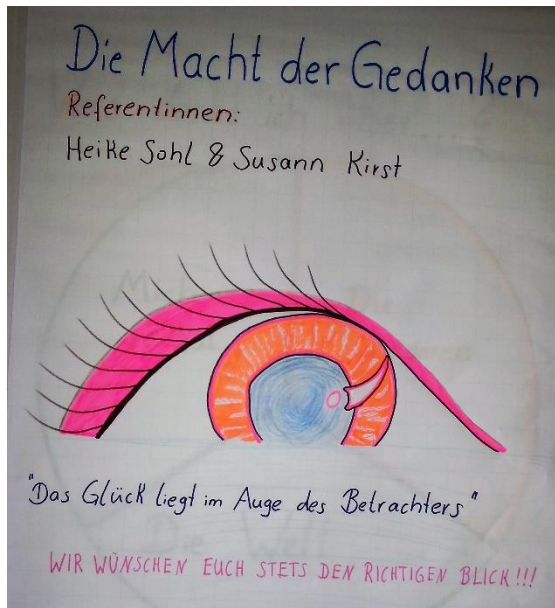 Die Macht der Gedanken
Referentinnen:
Heike Sohl & Susann Kirst
"Das Glück liegt im Auge des Betrachters"
WIR WÜNSCHEN EUCH STETS DEN RICHTIGEN BLICK!!!